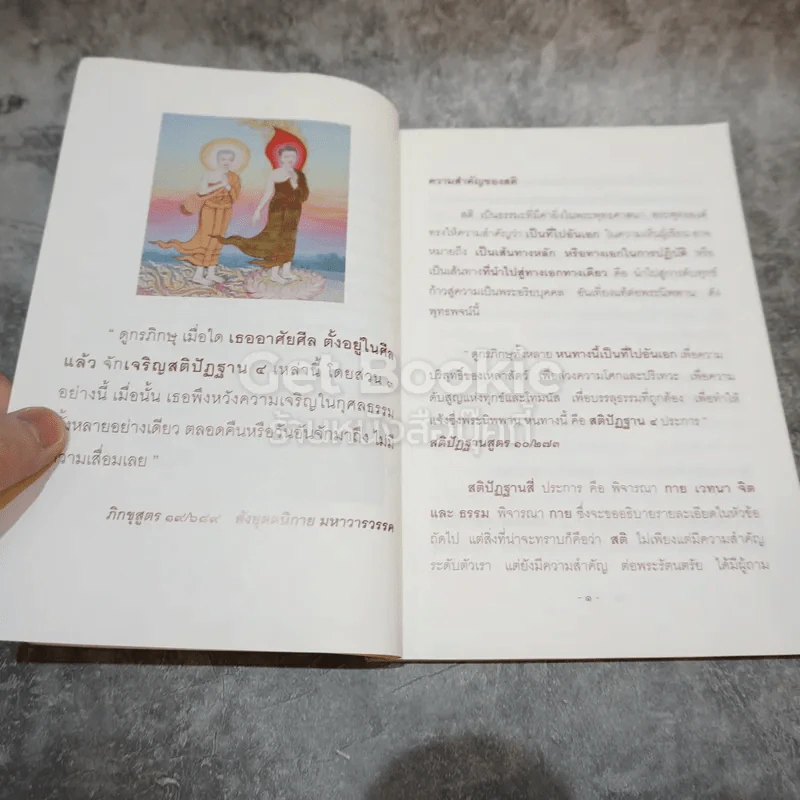 " ดูกรภิกษุ เมื่อใด เธออาศัยศีล ตั้งอยู่ในศีล
แล้ว จักเจริญสติปัฏฐาน ๔ เหล่านี้ โดยส่วน ๖
อย่างนี้ เมื่อนั้น เธอพึงหวังความเจริญในกุศลธรรม
ั้งหลายอย่างเดียว ตลอดคืนหรือวันอันจักมาถึง ไม่มี
วามเสื่อมเลย "
ภิกขุสูตร ๑๙/๖๘๙ สังยุตตนิกาย มหาวารวรรค
ความสำคัญของสติ
สติ เป็นธรรมะที่มีค่ายิ่งในพระพุทธศาสนา พระพุทธองค์
ทรงให้ความสำคัญว่า เป็นที่ไปอันเอก ในความเห็นผู้เขียน อาจ
หมายถึง เป็นเส้นทางหลัก หรือทางเอกในการปฏิบัติ หรือ
เป็นเส้นทางที่นำไปสู่ทางเอกทางเดียว คือ นำไปสู่การดับทุกข์
ก้าวสู่ความเป็นพระอริยบุคคล อันเที่ยงแท้ต่อพระนิพพาน ดัง
พุทธพจน์นี้
" ดูกรภิกษุทั้งหลาย หนทางนี้เป็นที่ไปอันเอก เพื่อความ
บริสุทธิ์ของเหล่าสัตว์ เพื่อล่วงความโศกและปริเทวะ เพื่อความ
ดับสูญแห่งทุกข์และโทมนัส เพื่อบรรลุธรรมที่ถูกต้อง เพื่อทำให้
แจ้งซึ่งพระนิพพาน หนทางนี้ คือ สติปัฏฐาน ๔ ประการ "
สติปัฏฐานสูตร ๑๐/๒๗๓
สติปัฏฐานสี่ ประการ คือ พิจารณา กาย เวทนา จิต
และ ธรรม พิจารณา กาย ซึ่งจะขออธิบายรายละเอียดในหัวข้อ
ถัดไป แต่สิ่งที่น่าจะทราบก็คือว่า สติ ไม่เพียงแต่มีความสำคัญ
ระดับตัวเรา แต่ยังมีความสำคัญ ต่อพระรัตนตรัย ได้มีผู้ถาม
- ๑ -
Get Bookie
ร้านหนังสือกุ๊กกี้